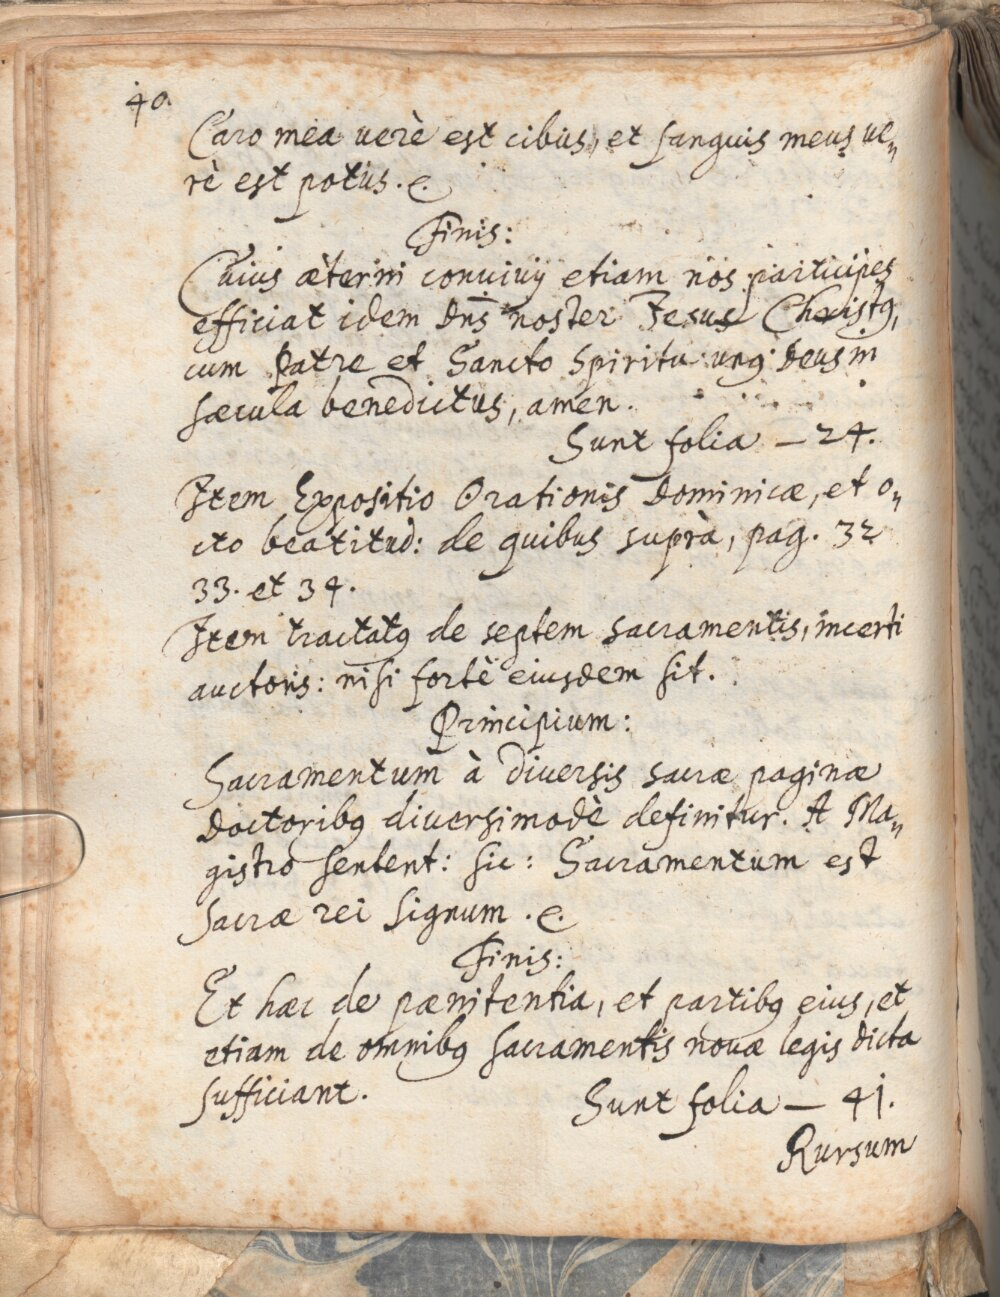 40.
Caro mea uerè est cibus, et sanguis meus ue„
rè est potus. &.
Finis:
Cuius æterni conuiuij etiam nos participes
efficiat idem Dn̄s noster Jesus Christꝰ,
cum Patre et Sancto Spiritu unꝰ Deus in
sæcula benedictus, amen.
Sunt folia — 24.
Item Expositio Orationis Dominicæ, et o„
cto beatitud: de quibus suprà, pag. 32
33. et 34.
Item tractatꝰ de septem sacramentis, incerti
auctoris: nisi fortè eiusdem sit.
Principium:
Sacramentum à diuersis sacræ paginæ
Doctoribꝰ diuersimodè definitur. A Ma„
gistro Sentent: sic: Sacramentum est
sacræ rei signum. &.
Finis:
Et hæc de pænitentia, et partibꝰ eius, et
etiam de omnibꝰ sacramentis nouæ legis dicta
sufficiant.
Sunt folia — 41.
Rursum